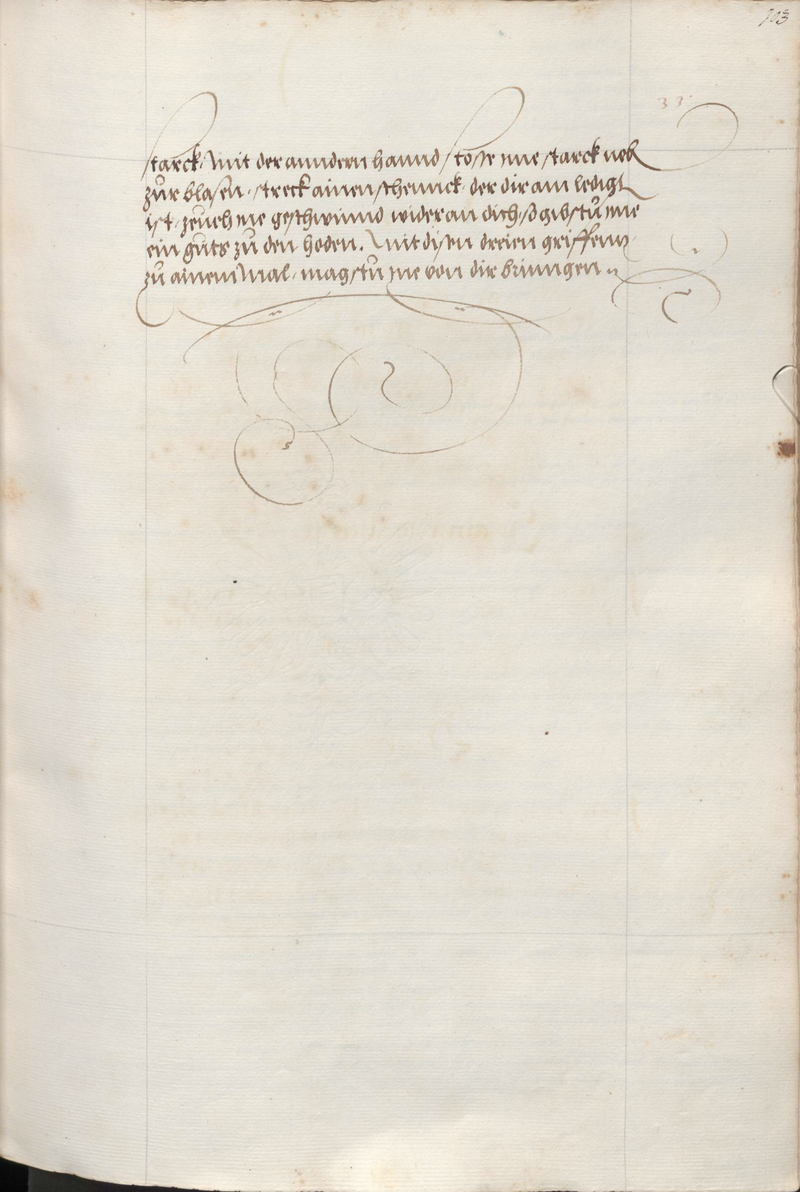 103
33
starck, mit der anndern hannd stosse ime starck neb
zur blasen, streck ainen schennck, der dir am ledigt
ist, zeuch ine geschwinnd wider an dich, so gibstu ime
ein guts zu den hoden. Mit disen dreien griffenn,
zu ainem mal, magstu ine von dir bringen